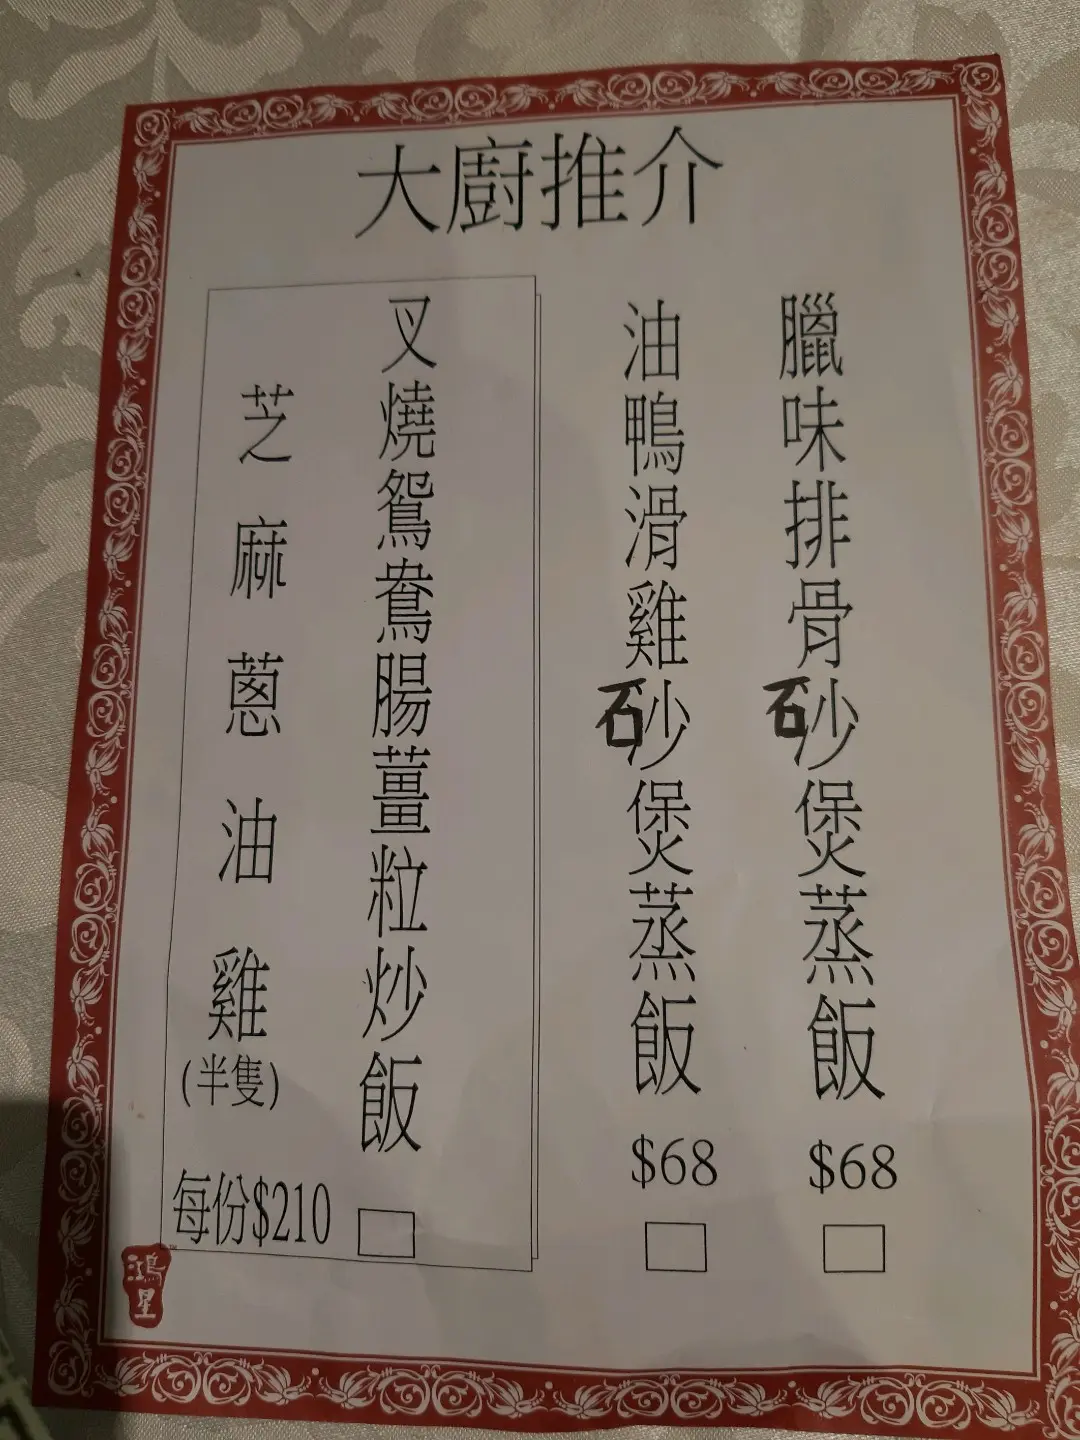 大廚推介
臘味排骨砂煲蒸飯
$68
油鴨滑雞砂煲蒸飯
$68
叉燒鴛鴦腸薑粒炒飯
芝麻蔥油雞
(半隻)
每份$210
鴻星